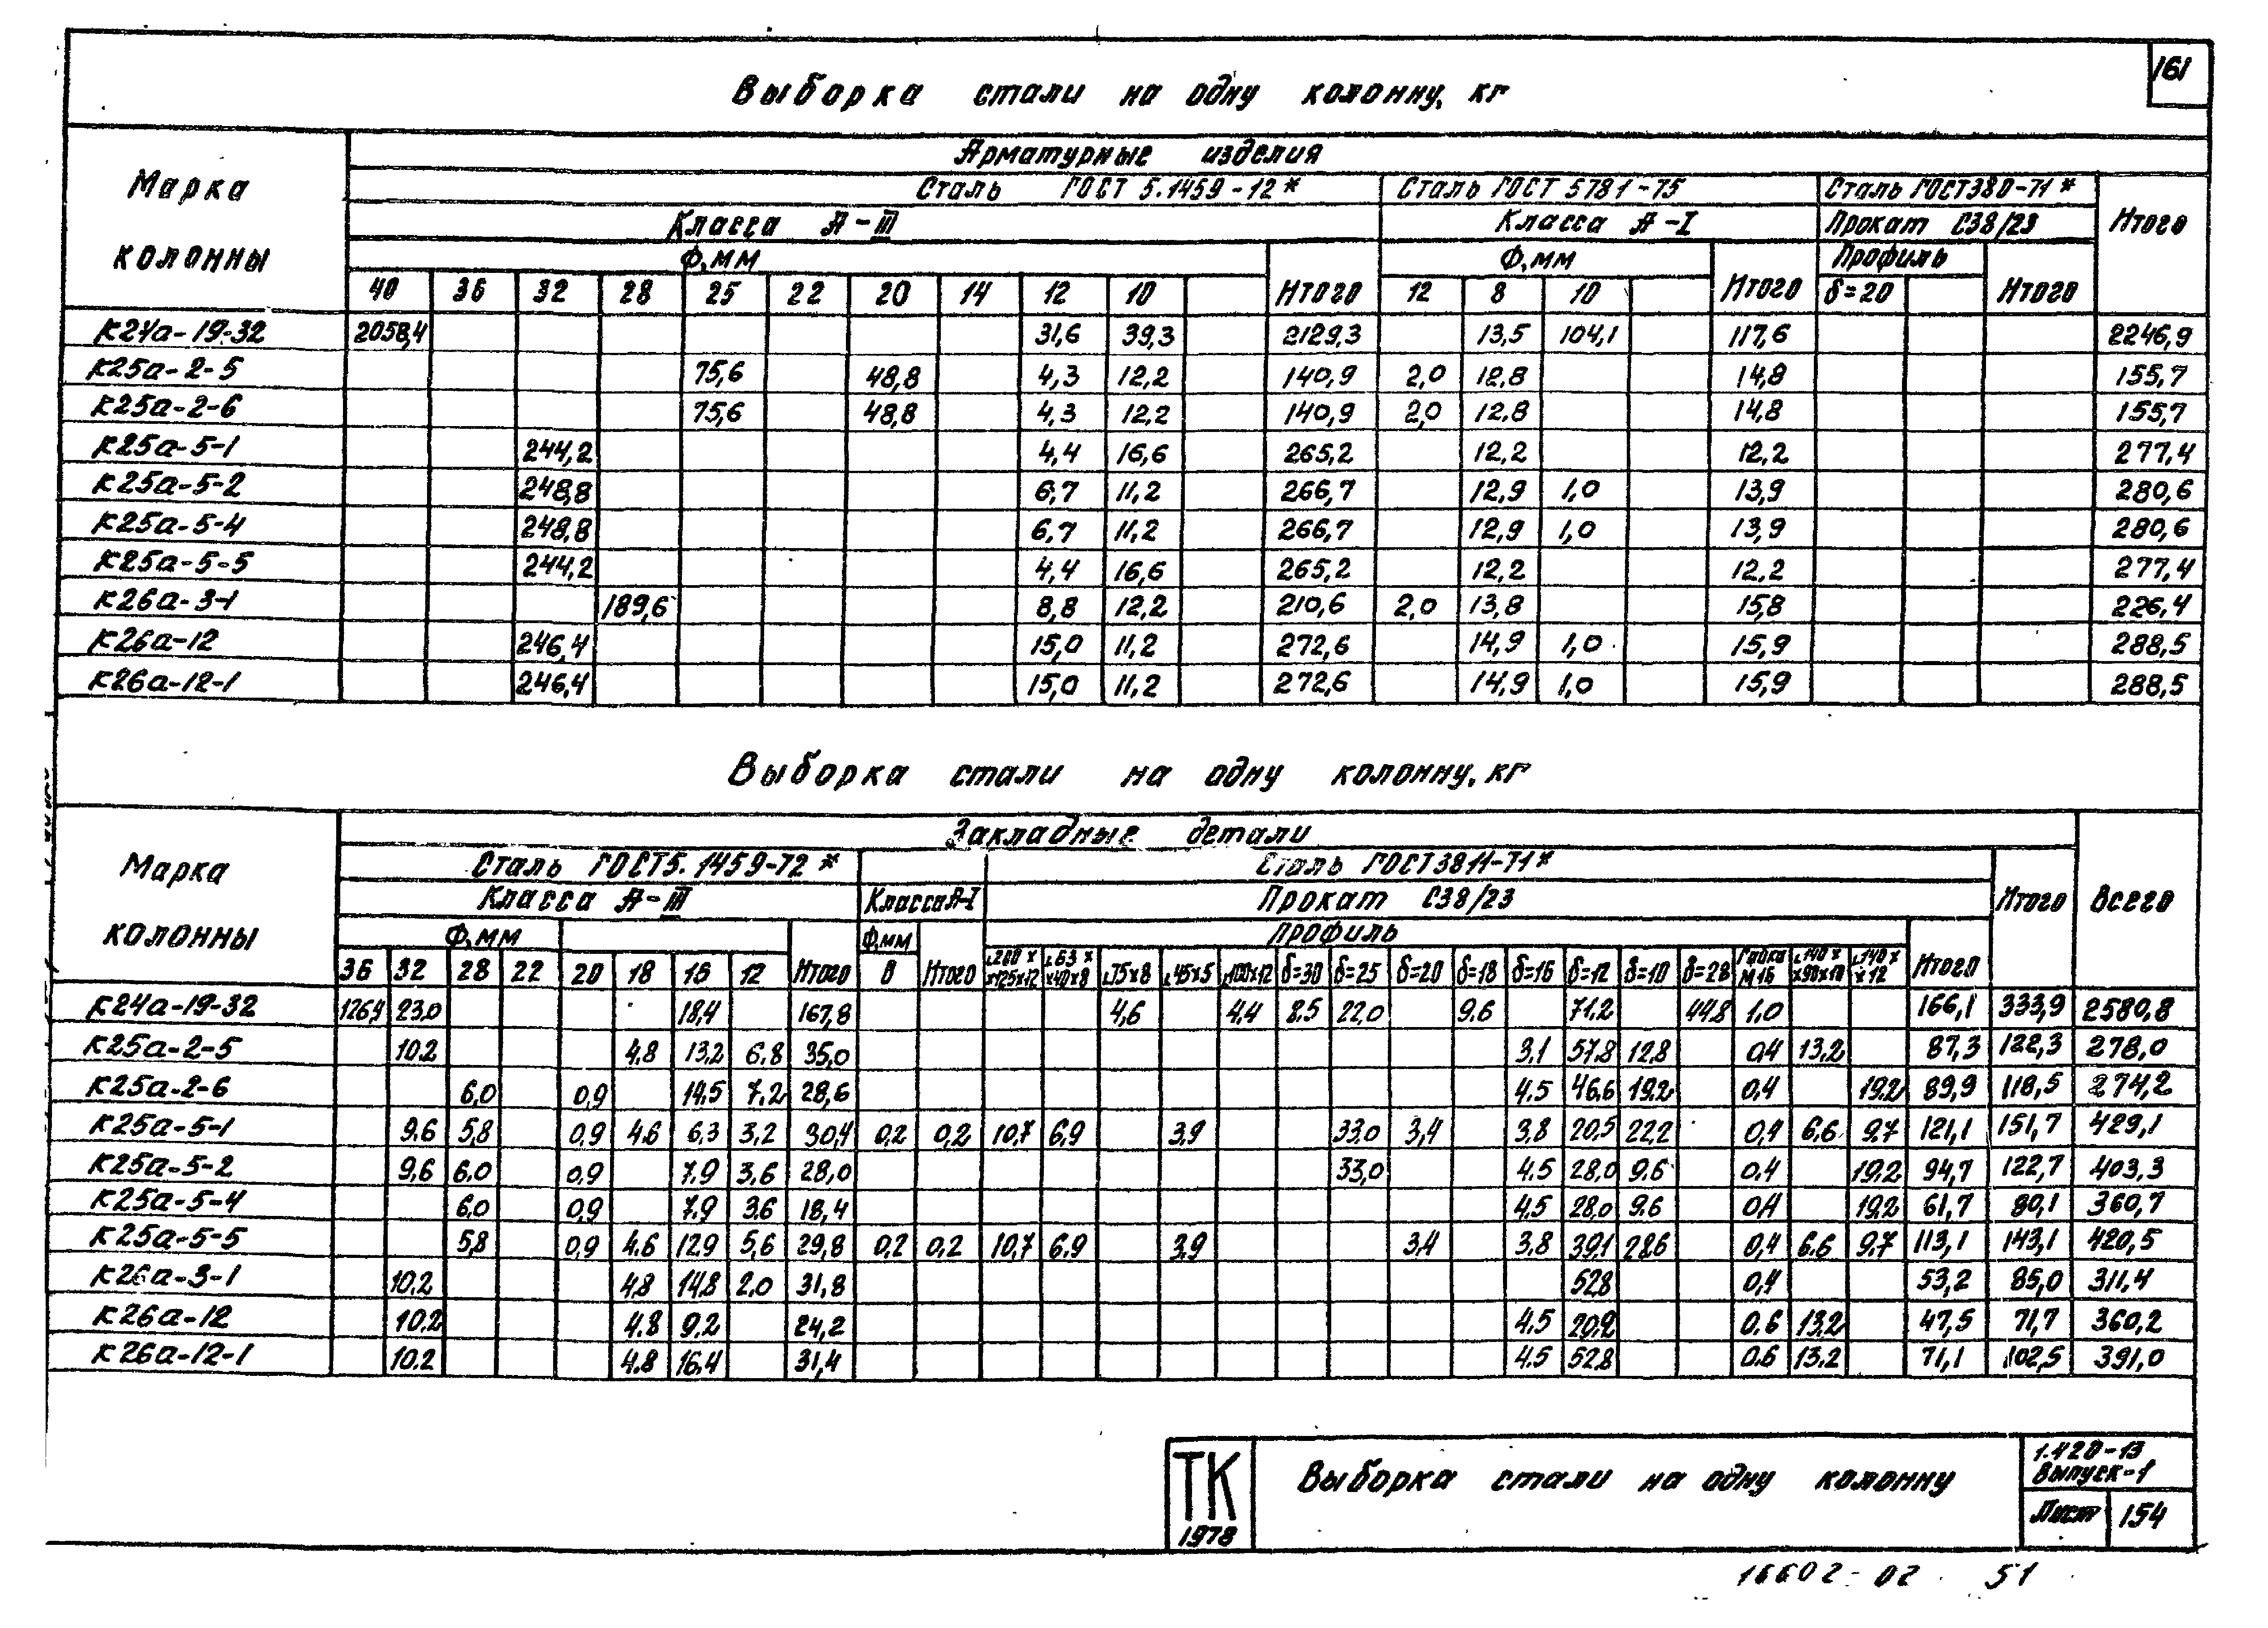 161
Выборка стали на одну колонну, кг
Марка колонны
Арматурные изделия
Сталь ГОСТ 5.1459-12* Сталь ГОСТ 5781-75 Сталь ГОСТ380-71* Итого
Класса А-III Класса А-I Прокат С38/23
Ф,мм Итого Ф,мм Итого Профиль Итого
40 36 32 28 25 22 20 14 12 10 12 8 10 δ=20
К24а-19-32 2058,4 31,6 39,3 2129,3 13,5 104,1 117,6 2246,9
К25а-2-5 75,6 48,8 4,3 12,2 140,9 2,0 12,8 14,8 155,7
К25а-2-6 75,6 48,8 4,3 12,2 140,9 2,0 12,8 14,8 155,7
К25а-5-1 244,2 4,4 16,6 265,2 12,2 12,2 277,4
К25а-5-2 248,8 6,7 11,2 266,7 12,9 1,0 13,9 280,6
К25а-5-4 248,8 6,7 11,2 266,7 12,9 1,0 13,9 280,6
К25а-5-5 244,2 4,4 16,6 265,2 12,2 12,2 277,4
К26а-3-1 189,6 8,8 12,2 210,6 2,0 13,8 15,8 226,4
К26а-12 246,4 15,0 11,2 272,6 14,9 1,0 15,9 288,5
К26а-12-1 246,4 15,0 11,2 272,6 14,9 1,0 15,9 288,5
Выборка стали на одну колонну, кг
Марка колонны
Закладные детали
Сталь ГОСТ5.1459-72* Сталь ГОСТ3811-71* Итого Всего
Класса А-III Класса А-I Прокат С38/23
Ф,мм Итого Ф,мм Итого Профиль Итого
36 32 28 22 20 18 16 12 8 ∟200x x125x12 ∟63x x40x8 ∟75x8 ∟45x5 ∟100x12 δ=30 δ=25 δ=20 δ=18 δ=16 δ=12 δ=10 δ=28 Гайка М16 ∟140x x90x10 ∟140x x12
К24а-19-32 126,4 23,0 18,4 167,8 4,6 4.4 8.5 22,0 9.6 71,2 44.8 1,0 166,1 333,9 2580,8
К25а-2-5 10.2 4.8 13,2 6.8 35,0 3.1 57.8 12,8 0,4 13,2 87,3 122,3 278,0
К25а-2-6 6,0 0,9 14,5 7.2 28,6 4.5 46.6 19,2 0,4 19,2 89,9 118,5 274,2
К25а-5-1 9.6 5,8 0,9 4.6 6.3 3,2 30,4 0,2 0,2 10,7 6,9 3,9 33,0 3,4 3,8 20,5 22,2 0,4 6.6 9,7 121,1 151,7 429,1
К25а-5-2 9,6 6.0 0,9 7.9 3,6 28,0 33,0 4.5 28,0 9.6 0,4 19,2 94,7 122,7 403,3
К25а-5-4 6,0 0,9 7.9 3.6 18,4 4,5 28,0 9.6 0,4 19,2 61,7 80,1 360,7
К25а-5-5 5,8 0,9 4.6 12,9 5,6 29,8 0,2 0,2 10,7 6,9 3,9 3,4 3,8 39,1 28.6 0,4 6.6 9,7 113,1 143,1 420,5
К26а-3-1 10.2 4,8 14,8 2,0 31,8 52,8 0,4 53,2 85,0 311,4
К26а-12 10,2 4.8 9,2 24,2 4.5 20,2 0.6 13,2 47,5 71,7 360,2
К26а-12-1 10.2 4.8 16,4 31,4 4.5 52,8 0.6 13.2 71,1 102,5 391,0
ТК
1978
Выборка стали на одну колонну
1.420-13
Выпуск-1
Лист 154
16602-02 51